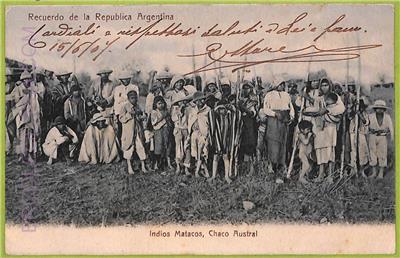 Recuerdo de la Republica Argentina
Cordiali e rispettosi saluti a Lei e fam.
15/6/07
Indios Matacos, Chaco Austral